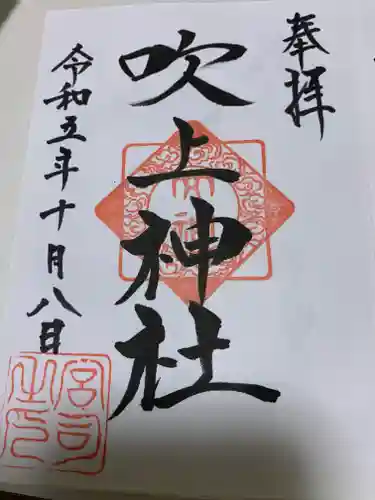 奉拝
吹上神社
令和五年十月八日
宮司之印